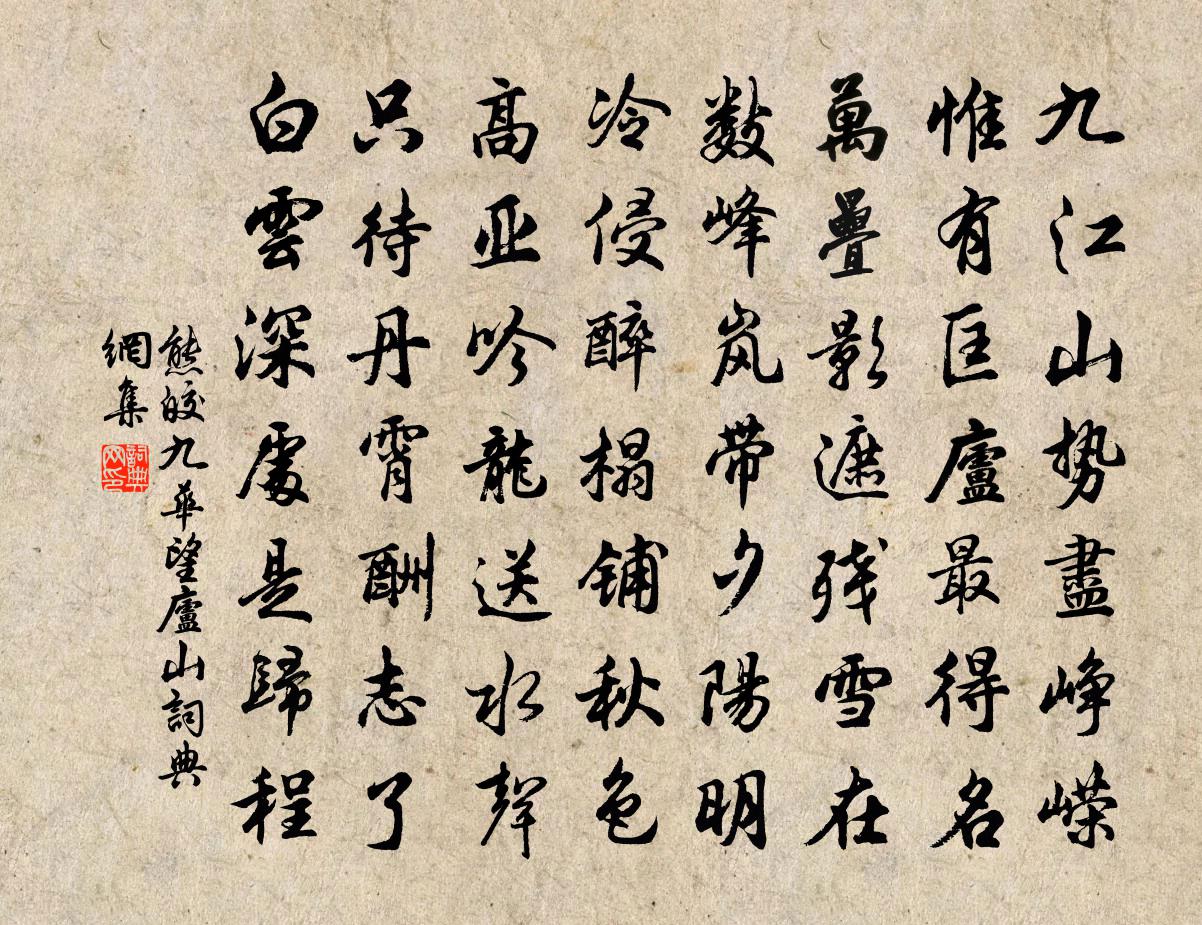 九江山势盡崢嶸
惟有匡廬最得名
萬疊影遮残雪在
數峰岚带夕陽明
冷侵醉榻鋪秋色
高亚吟龍送水聲
只待丹霄酬志了
白雲深處是歸程
熊皎九華望廬山詞典
網集
詞典網印